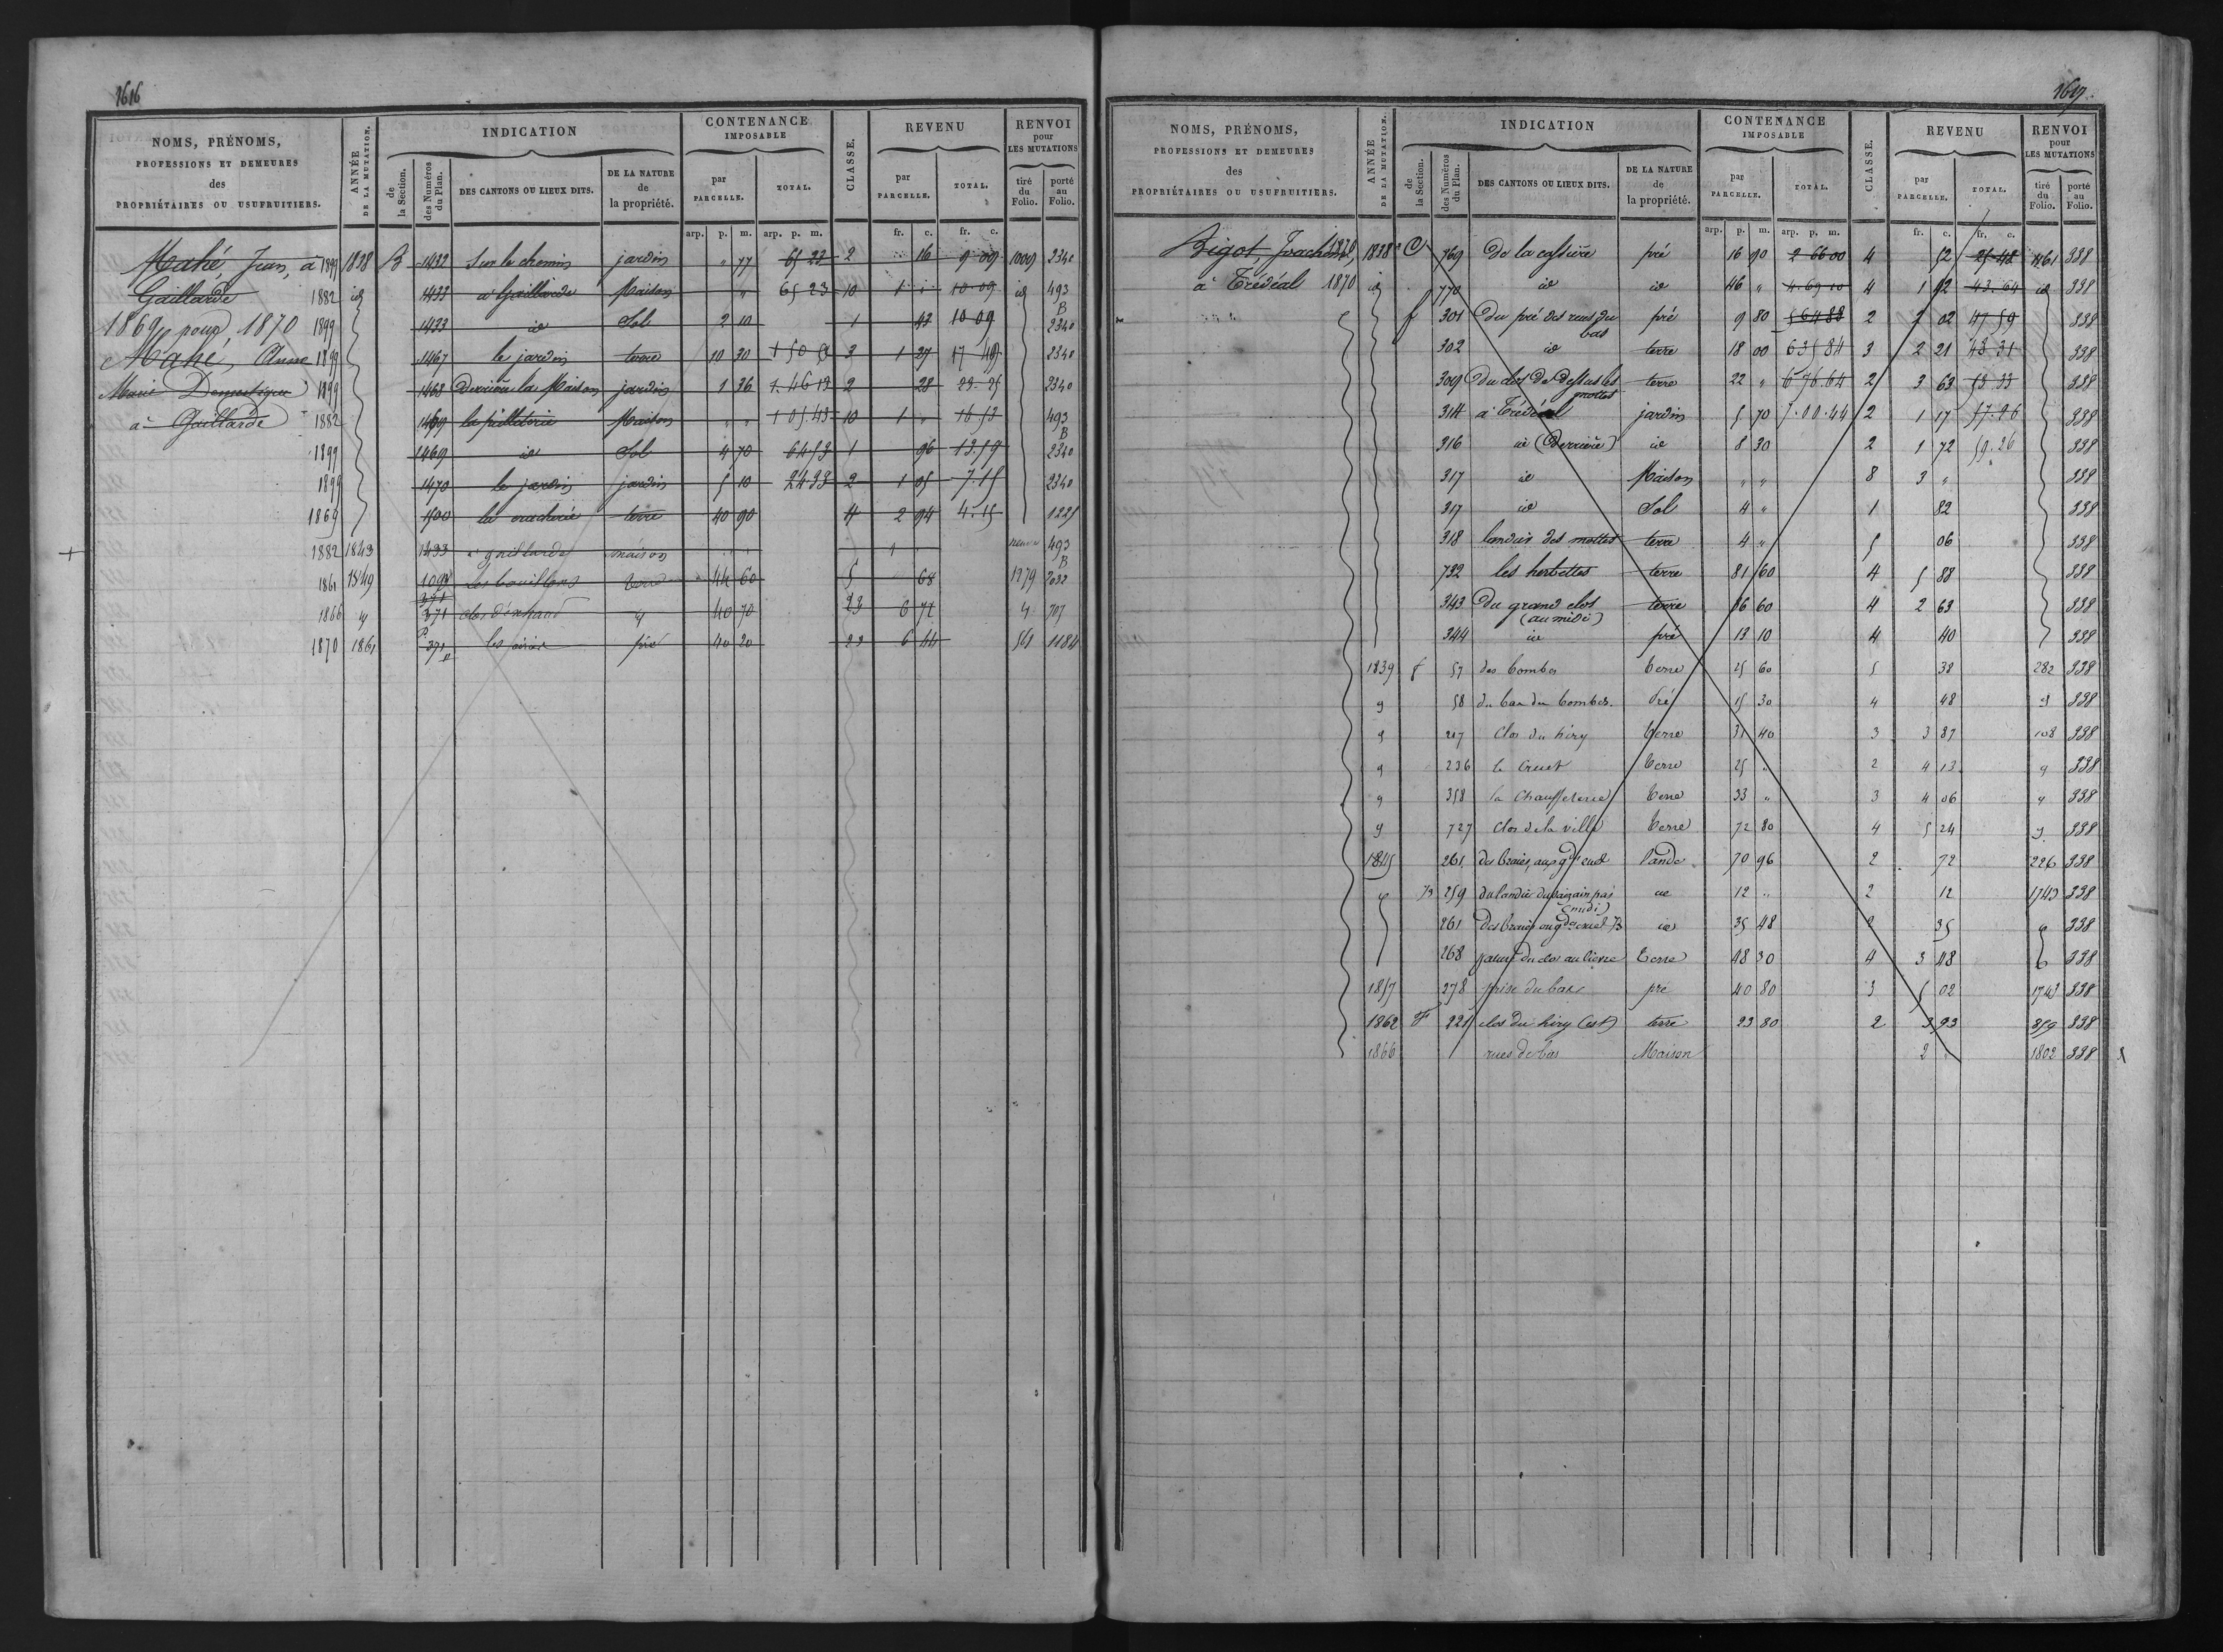 1616
NOMS, PRÉNOMS, PROFESSIONS ET DEMEURES des PROPRIÉTAIRES OU USUFRUITIERS.
ANNÉE DE LA MUTATION.
INDICATION
de la Section.
des Numéros du Plan.
DES CANTONS OU LIEUX DITS.
DE LA NATURE de la propriété.
CONTENANCE IMPOSABLE
par PARCELLE.
TOTAL.
CLASSE.
REVENU
par PARCELLE.
TOTAL.
RENVOI pour LES MUTATIONS
tiré du Folio.
porté au Folio.
arp. p. m. arp. p. m. fr. c. fr. c.
Mahé, Jean, à 1899 1838 B 1432 Sur le chemin jardin " 77 65 23 2 16 9 09 1009 2340
Gaillarde 1882 id 1433 à Gaillarde Maison " 65 23 10 1 " 10 09 id 493 B
1869 pour 1870 1899 1433 id Sol 2 10 1 43 10 09 2340
Mahé, Anne 1899 1467 le jardin terre 10 30 1 50 3 1 27 17 49 2340
Marie Domestique 1899 1468 Derrière la Maison jardin 1 36 1 46 13 2 28 23 25 2340
à Gaillarde 1882 1469 Maison " " 1 05 43 10 1 " 16 53 493 B
1899 1469 id Sol 4 70 64 53 1 96 13 59 2340
1899 1470 le jardin jardin 5 10 24 33 2 1 05 7 15 2340
1869 1500 la terre 40 90 4 2 94 4 15 1225
+ 1882 1843 1433 à gaillarde maison " " 1 493 B
1861 1849 les bouillons terre 44 60 5 68 1279 2032
1866 " 371 clos " 40 70 23 6 72 " 707
1870 1861 371 p pré 40 20 23 6 44 561 1184
1617
NOMS, PRÉNOMS, PROFESSIONS ET DEMEURES des PROPRIÉTAIRES OU USUFRUITIERS.
ANNÉE DE LA MUTATION.
INDICATION
de la Section.
des Numéros du Plan.
DES CANTONS OU LIEUX DITS.
DE LA NATURE de la propriété.
CONTENANCE IMPOSABLE
par PARCELLE.
TOTAL.
CLASSE.
REVENU
par PARCELLE.
TOTAL.
RENVOI pour LES MUTATIONS
tiré du Folio.
porté au Folio.
arp. p. m. arp. p. m. fr. c. fr. c.
Bigot, Joachim 1870 1838 C 769 De la cassière pré 16 90 2 66 00 4 52 25 48 1461 338
à Trédéal 1870 id 770 id id 46 " 4 69 10 4 1 12 43 64 id 338
f 301 Du pré des rues du bas pré 9 80 5 64 88 2 2 02 47 59 338
302 id terre 18 00 6 35 84 3 2 21 48 31 338
309 Du clos de dessus les mottes terre 22 " 6 76 64 2 3 63 53 33 338
314 à Trédéal jardin 5 70 7 00 44 2 1 17 57 26 338
316 id (Derrière) id 8 30 2 1 72 59 26 338
317 id Maison " " 8 3 " 338
317 id Sol 4 " 1 82 338
318 landier des mottes terre 4 " 5 06 338
732 les herbettes terre 81 60 4 5 88 338
343 Du grand clos (au midi) terre 36 60 4 2 63 338
344 id pré 13 10 4 40 338
1839 f 57 des Combes terre 25 60 5 38 282 338
" 58 du bas des Combes pré 15 30 4 48 " 338
" 217 Clos du hiry terre 31 40 3 3 87 108 338
" 236 le Cruet terre 25 " 2 4 13 " 338
" 358 la Chauffeterie terre 33 " 3 4 06 " 338
" 727 Clos de la ville terre 72 80 4 5 24 " 338
1845 261 lande 70 96 2 72 226 338
" B 259 (midi) id 12 " 2 12 1743 338
261 id 35 48 2 35 " 338
268 du clos au lièvre terre 48 30 4 3 48 338
1857 278 prise du bas pré 40 80 3 5 02 1743 338
1862 F 221 clos du hiry (est) terre 23 80 2 3 93 859 338
1866 rues de bas Maison 2 " 1802 338